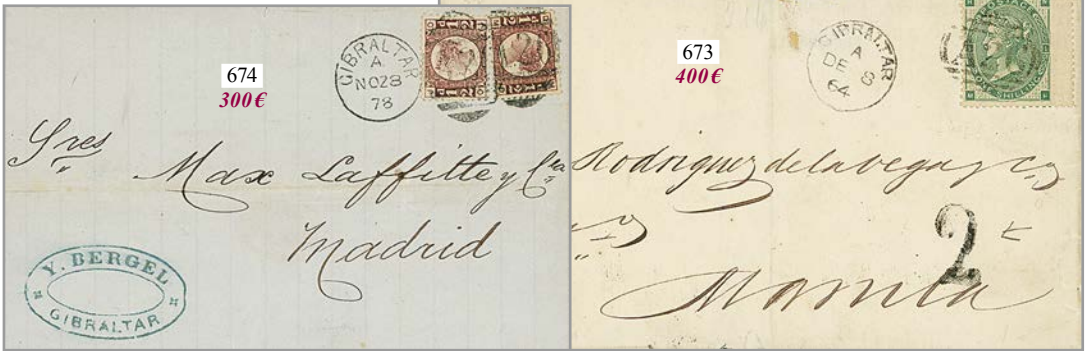 674
300€
GIBRALTAR
A
NO28
78
Sres
Max Laffitte y Cia
Madrid
Y. BERGEL
GIBRALTAR
673
400€
GIBRALTAR
A
DE 8
64
POSTAGE
Rodriguez de la Vega y Ca
2
Manila